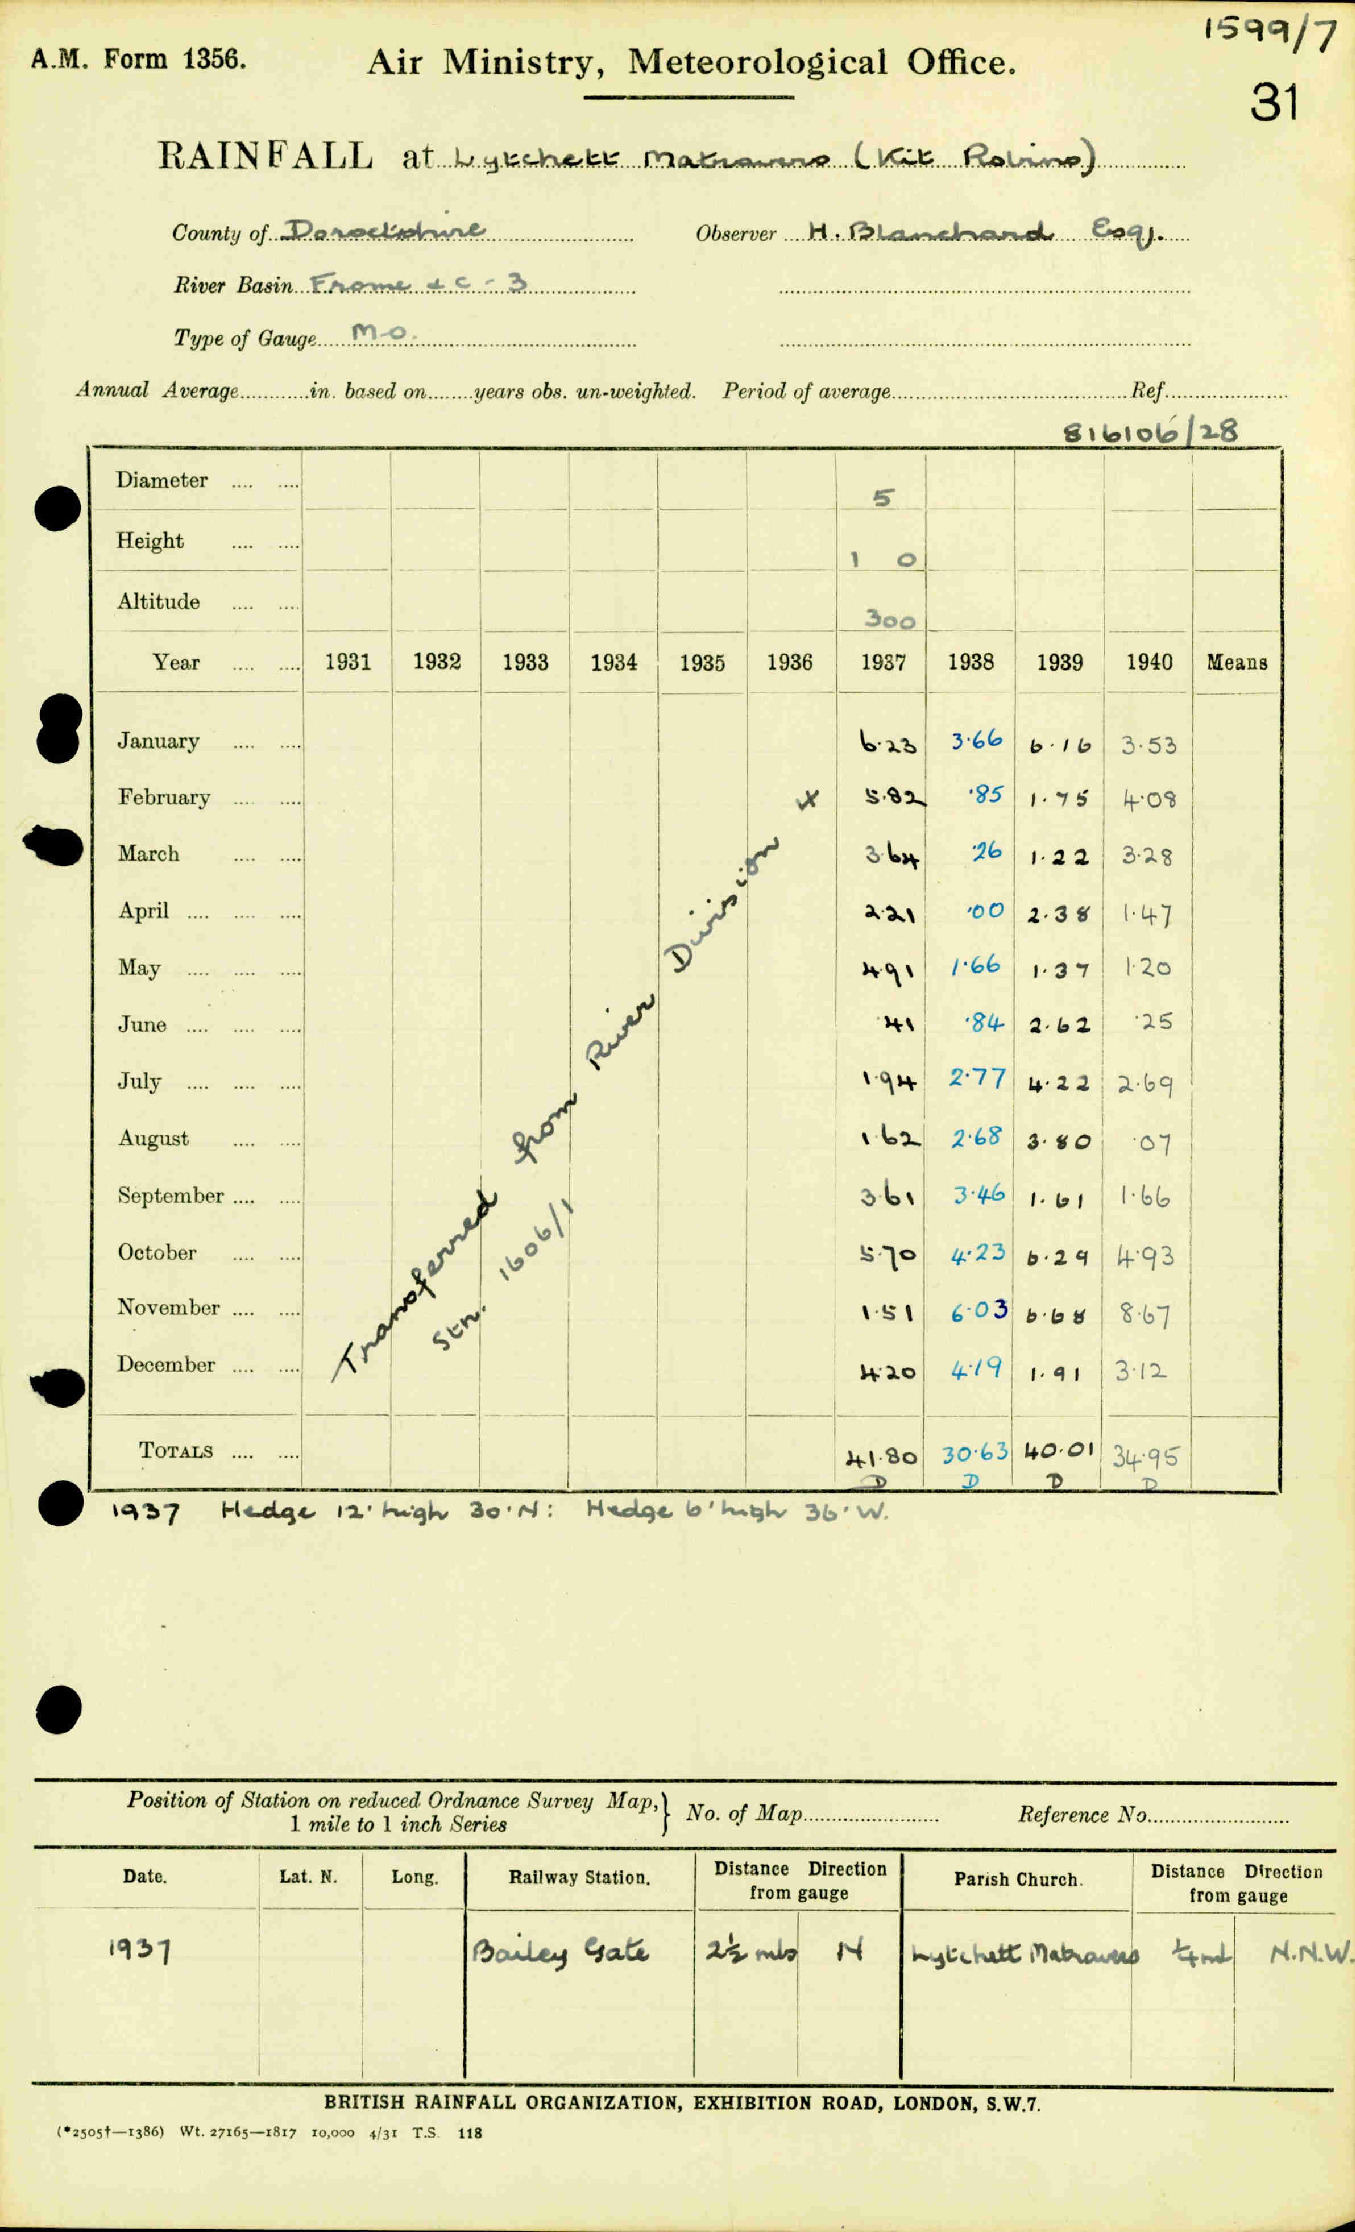 1599/7
A.M. Form 1356.
Air Ministry, Meteorological Office.
31
RAINFALL at Lytchett Matravers (Kit Robins)
County of Dorsetshire Observer H. Blanchard Esq.
River Basin Frome &c - 3
Type of Gauge M.O.
Annual Average in. based on years obs. un-weighted. Period of average Ref.
816106/28
Diameter 5
Height 1 0
Altitude 300
Year 1931 1932 1933 1934 1935 1936 1937 1938 1939 1940 Means
January 6.23 3.66 6.16 3.53
February 5.82 .85 1.75 4.08
March 3.64 .26 1.22 3.28
April 2.21 .00 2.38 1.47
May 4.91 1.66 1.37 1.20
June .41 .84 2.62 .25
July 1.94 2.77 4.22 2.69
August 1.62 2.68 3.80 .07
September 3.61 3.46 1.61 1.66
October 5.70 4.23 6.29 4.93
November 1.51 6.03 6.68 8.67
December 4.20 4.19 1.91 3.12
TOTALS 41.80 30.63 40.01 34.95
D D D D
Transferred from River Division x
Stn. 1606/1
1937 Hedge 12' high 30' N: Hedge 6' high 36' W.
Position of Station on reduced Ordnance Survey Map, } No. of Map Reference No.
1 mile to 1 inch Series
Date. Lat. N. Long. Railway Station. Distance Direction from gauge Parish Church. Distance Direction from gauge
1937 Bailey Gate 2½ mls N Lytchett Matravers ¼ ml N.N.W.
BRITISH RAINFALL ORGANIZATION, EXHIBITION ROAD, LONDON, S.W.7.
(*2505†—1386) Wt. 27165—1817 10,000 4/31 T.S. 118